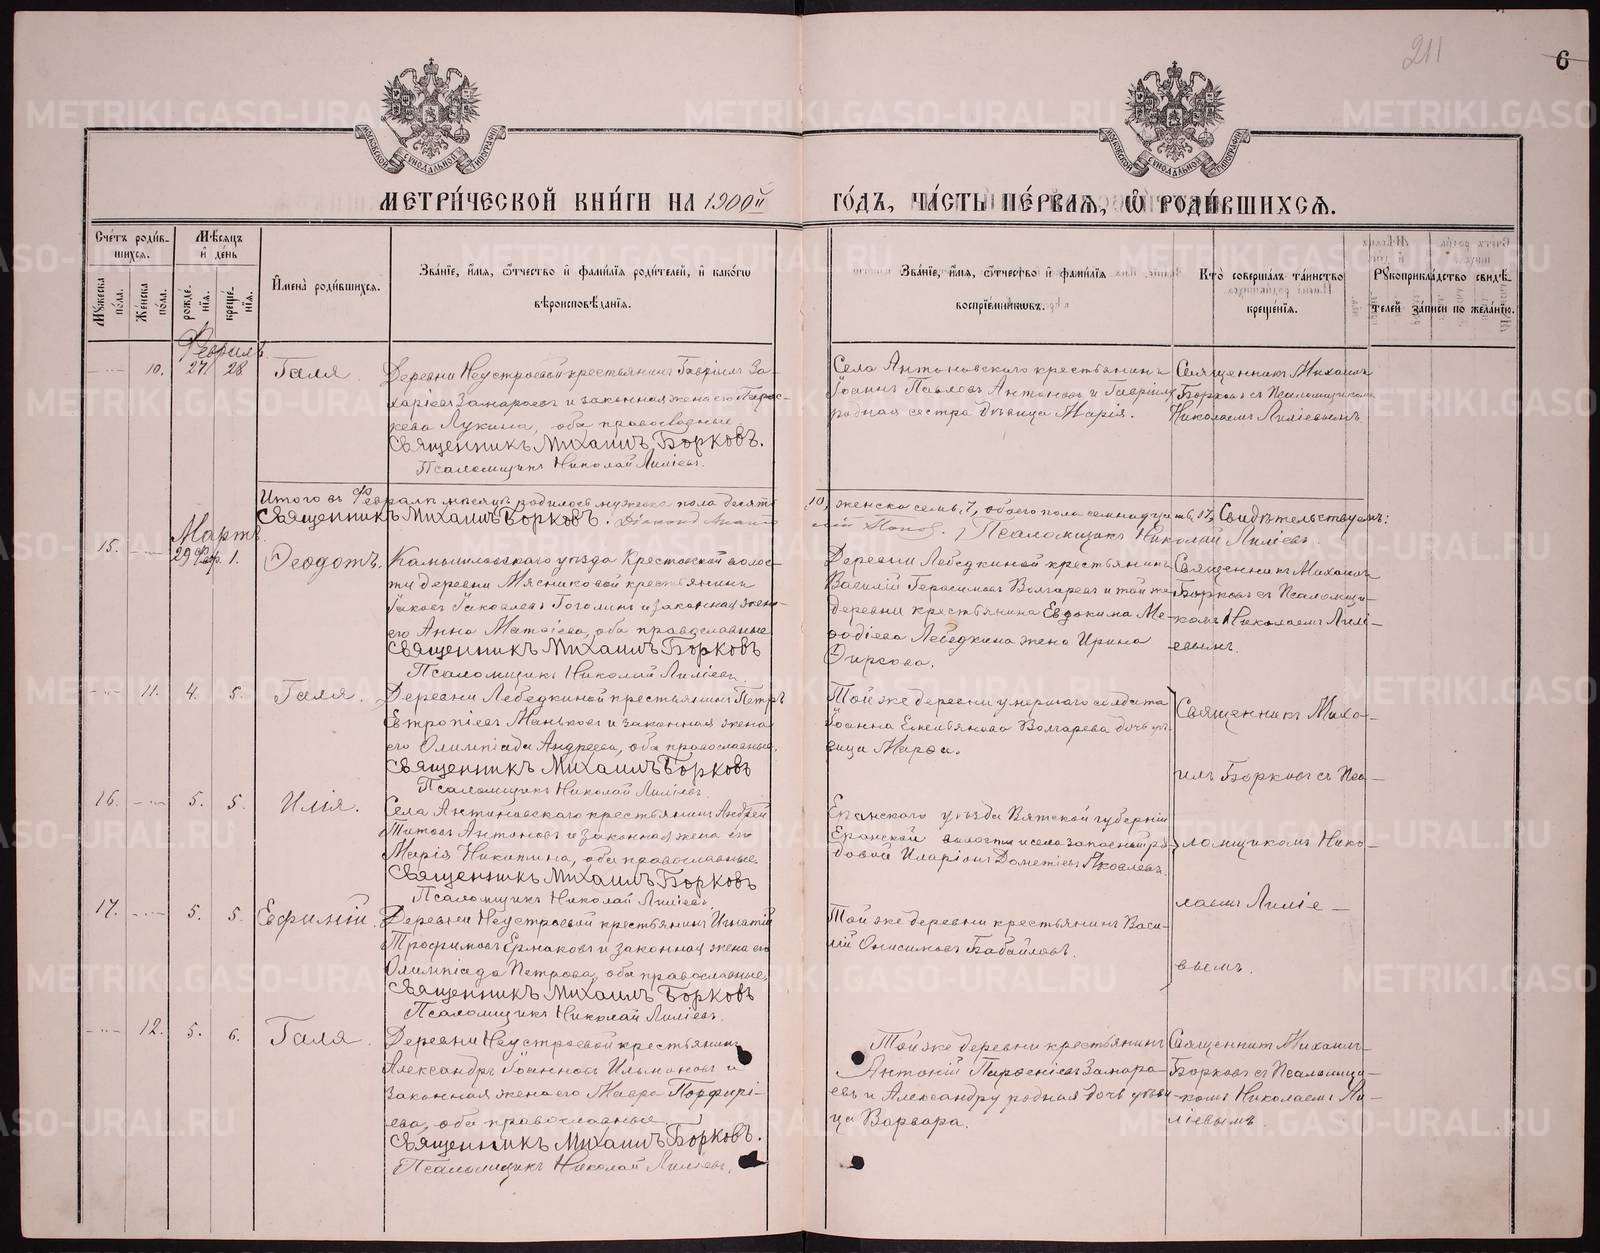 211
6
МЕТРИ́ЧЕСКОЙ КНИ́ГИ НА 1900й ГО́ДЪ, ЧА́СТЬ ПЕ́РВАЯ, Ѡ РОДИ́ВШИХСЯ.
Счетъ роди́вшихся.
Мꙋжеска по́ла.
Же́нска по́ла.
Мѣсяцъ и де́нь
рожде́нїя.
креще́нїя.
Имена̀ роди́вшихся.
Зва́нїе, и́мя, о́тчество и фами́лїя роди́телей, и како́гѡ вѣроисповѣ́данїя.
Зва́нїе, и́мя, о́тчество и фами́лїя воспрїе́мникѡвъ.
Кто̀ соверша́лъ та́инство креще́нїя.
Рꙋкоприкла́дство свидѣ́телей за́писи по жела́нїю.
Февраль
10. 27 28 Галя
Деревни Неустроевой крестьянинъ Гавріилъ За-
харіевъ Замараевъ и законная жена его Парас-
кева Лукина, оба православные
Священникъ Михаилъ Борковъ.
Псаломщикъ Николай Лиліевъ.
Села Антоновскаго крестьянинъ
Іоаннъ Павловъ Антоновъ и Гавріилу
родная сестра дѣвица Марія.
Священникъ Михаилъ
Борковъ съ Псаломщикомъ
Николаемъ Лиліевымъ.
Итого въ Февралѣ мѣсяцѣ родилось мужеска пола десять
10, женска семь, 7, обоего пола семнадцать, 17, Свидѣтельствуемъ:
Священникъ Михаилъ Борковъ.
Псаломщикъ Николай Лиліевъ.
Мартъ
15. 29 Февр. 1. Ѳеодотъ.
Камышловскаго уѣзда Крестовской волос-
ти деревни Мясниковой крестьянинъ
Іаковъ Іаковлевъ Гоголинъ и законная жена
его Анна Матѳіева, оба православные
Священникъ Михаилъ Борковъ
Псаломщикъ Николай Лиліевъ.
Деревни Лебедкиной крестьянинъ
Василій Герасимовъ Волгаревъ и той же
деревни крестьянина Евдокима Ме-
ѳодіева Лебедкина жена Ирина
Ѳирсова.
Священникъ Михаилъ
Борковъ съ Псаломщи-
комъ Николаемъ Лилі-
евымъ.
11. 4. 5. Галя.
Деревни Лебедкиной крестьянинъ Петръ
Евтропіевъ Маньковъ и законная жена
его Олимпіада Андреева, оба православные.
Священникъ Михаилъ Борковъ
Псаломщикъ Николай Лиліевъ.
Той же деревни умершаго солдата
Іоанна Емельянова Волгарева дочь дѣ-
вица Марѳа.
Священникъ Миха-
илъ Борковъ съ Пса-
ломщикомъ Нико-
лаемъ Лиліе-
вымъ.
16. 5. 5. Илія.
Села Антоновскаго крестьянинъ Андрей
Титовъ Антоновъ и законная жена его
Марія Никитина, оба православные
Священникъ Михаилъ Борковъ
Псаломщикъ Николай Лиліевъ.
Еранскаго уѣзда Вятской губерніи
Еранской волости и села запасной ря-
довой Иларіонъ Дометіевъ Яковлевъ.
17. 5. 5. Евфимій.
Деревни Неустроевой крестьянинъ Игнатій
Трофимовъ Ермаковъ и законная жена его
Олимпіада Петрова, оба православные,
Священникъ Михаилъ Борковъ
Псаломщикъ Николай Лиліевъ.
Той же деревни крестьянинъ Васи-
лій Онисимовъ Бабайловъ.
12. 5. 6. Галя.
Деревни Неустроевой крестьянинъ
Александръ Іоанновъ Ильиновъ и
законная жена его Мавра Порфирі-
ева, оба православные
Священникъ Михаилъ Борковъ.
Псаломщикъ Николай Лиліевъ.
Той же деревни крестьянинъ
Антоній Парѳеніевъ Замара-
евъ и Александру родная дочь дѣви-
ца Варвара.
Священникъ Михаилъ
Борковъ съ Псаломщи-
комъ Николаемъ Ли-
ліевымъ.
METRIKI.GASO-URAL.RU